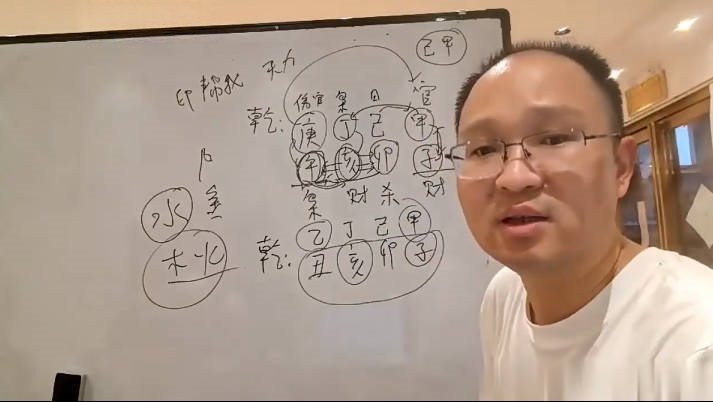 己甲
印帮我 力
伤官 枭 日 官
乾：庚 丁 己 甲
午 亥 卯 子
枭 财 杀 财
水 金
木火
乙 丁 己 甲
乾：丑 亥 卯 子